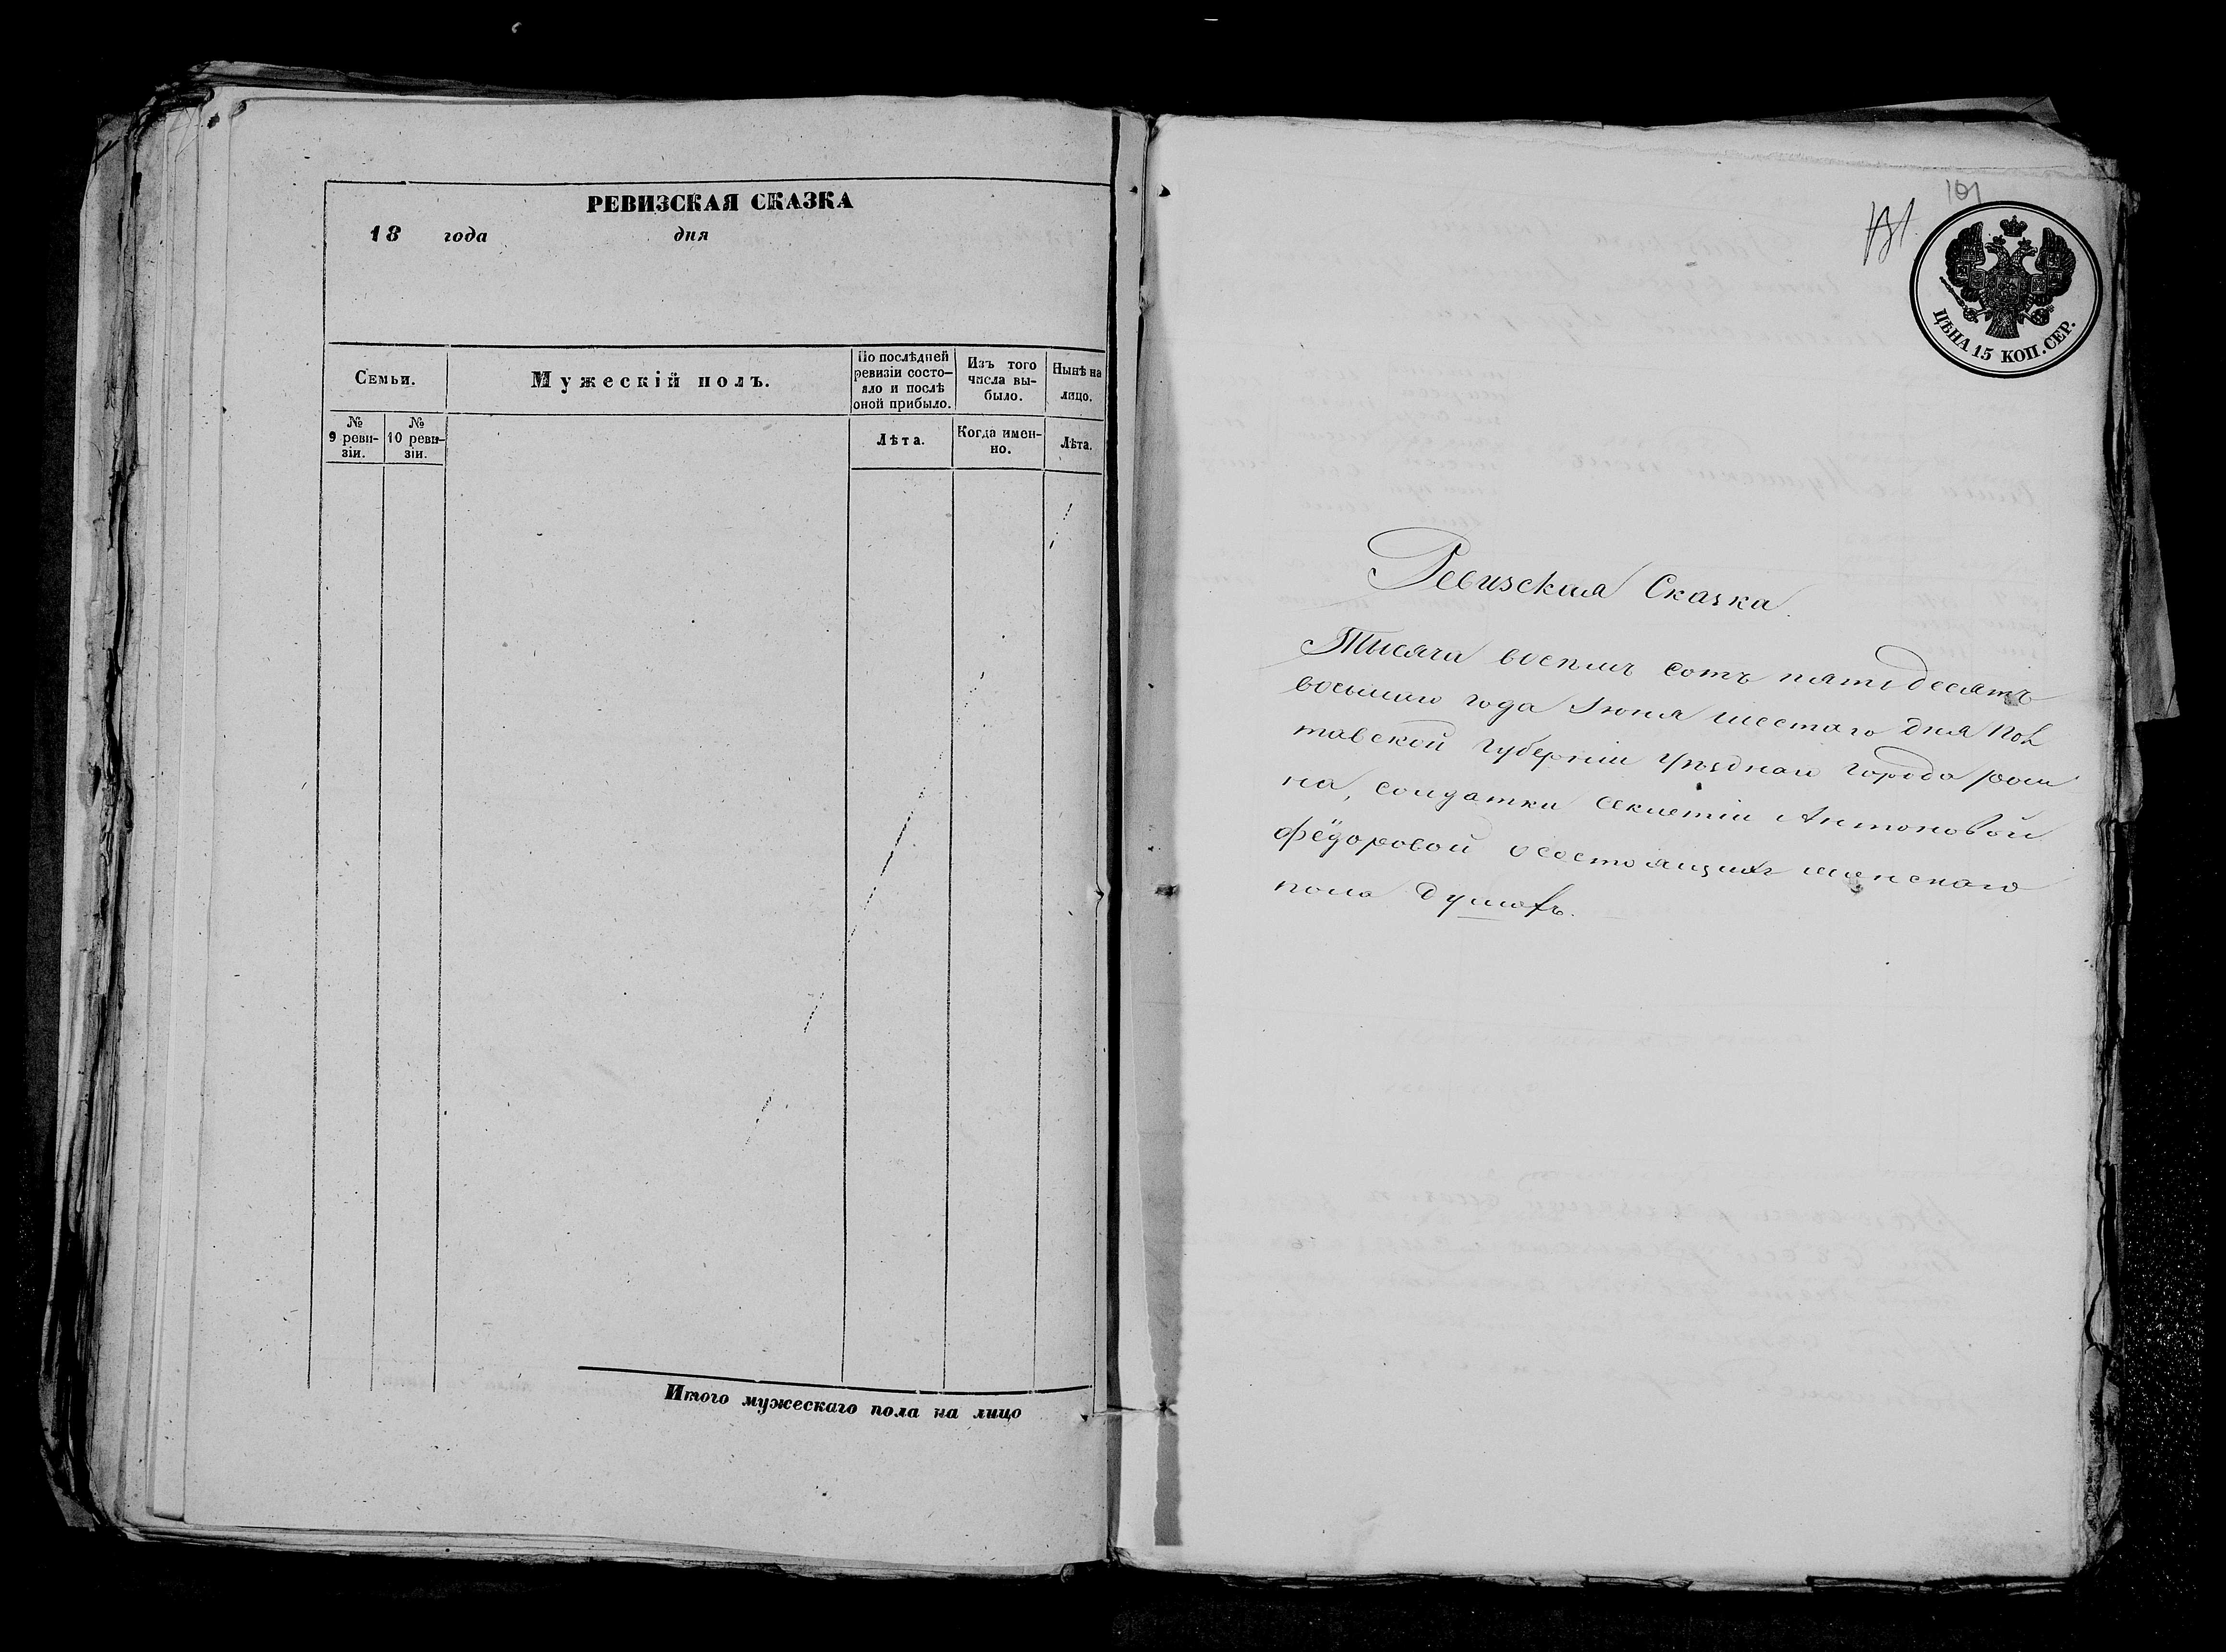 РЕВИЗСКАЯ СКАЗКА
18 года дня
Семьи.
Мужескій полъ.
По послѣдней
ревизіи состо-
яло и послѣ
оной прибыло.
Изъ того
числа вы-
было.
Нынѣ на
лицо.
№
9 реви-
зіи.
№
10 реви-
зіи.
Лѣта.
Когда имен-
но.
Лѣта.
Итого мужескаго пола на лицо
101
ЦѢНА 15 КОП. СЕР.
Ревизская Сказка.
Тысяча восемь сотъ пятьдесятъ
восьмаго года Іюня шестаго дня Пол
тавской Губерніи Уѣзднаго города
на, солдатки Антоновой
Фёдоровой о состоящихъ женскаго
пола душахъ.